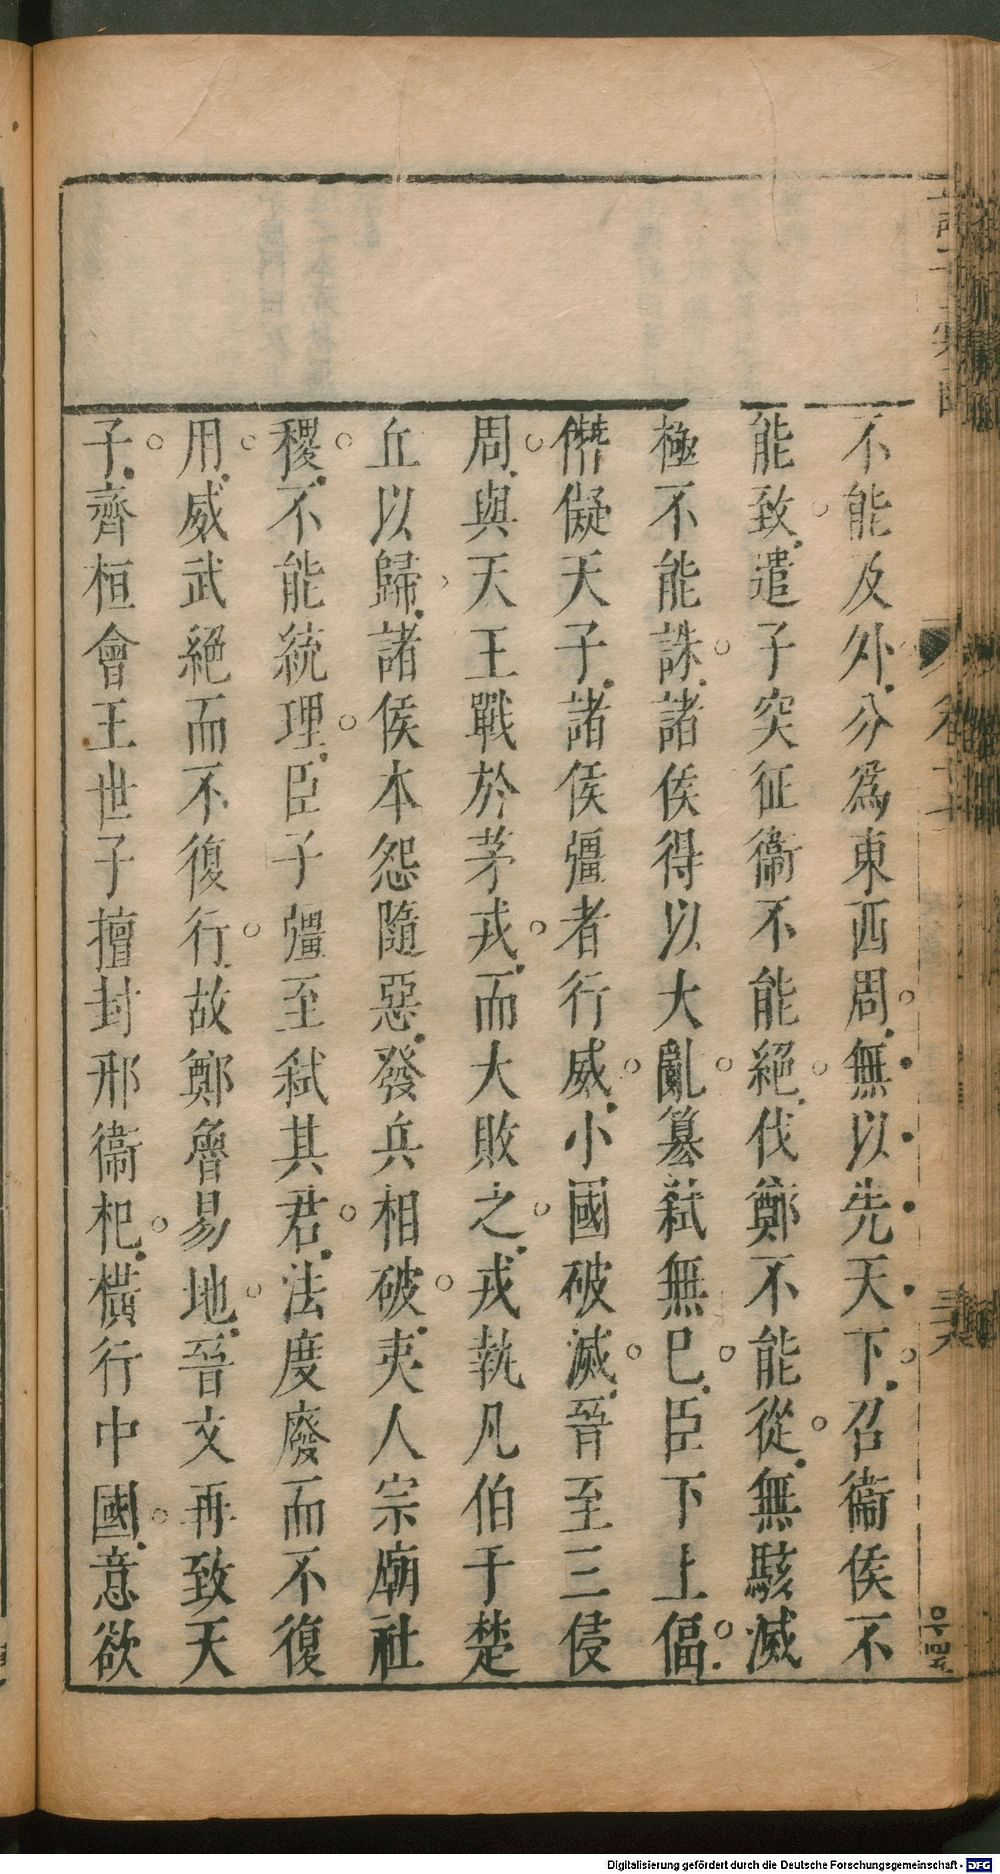 不能及外分爲東西周無以先天下召衞侯不
能致遣子突征衞不能絕伐鄭不能從無駭滅
極不能誅諸侯得以大亂篡弒無已臣下上偪
僭儗天子諸侯彊者行威小國破滅晉至三侵
周與天王戰於茅戎而大敗之戎執凡伯于楚
丘以歸諸侯本怨隨惡發兵相破夷人宗廟社
稷不能統理臣子彊至弒其君法度廢而不復
用威武絕而不復行故鄭魯易地晉文再致天
子齊桓會王世子擅封邢衞杞橫行中國意欲
Digitalisierung gefördert durch die Deutsche Forschungsgemeinschaft - DFG